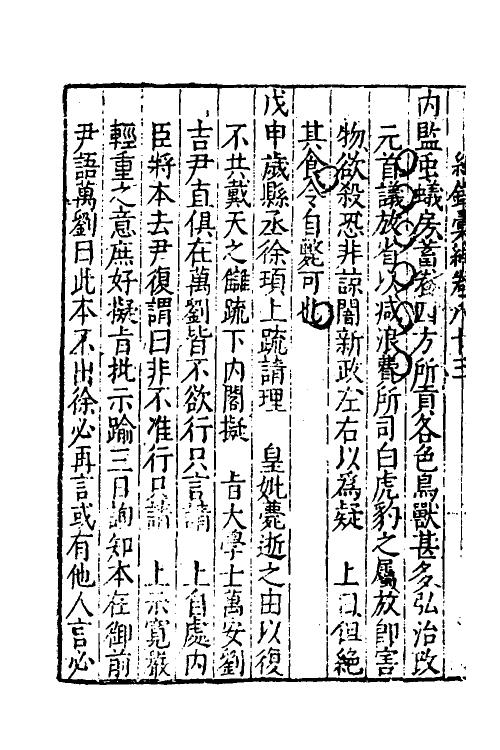 紀錄彙編卷八十三
内監䖝蟻房蓄養四方所貢各色鳥獸甚多弘治改
元首議放省以减浪費所司白虎豹之屬放卽害
物欲殺恐非諒闇新政左右以爲疑　上曰但絶
其食令自斃可也
戊申歲縣丞徐頊上疏請理　皇妣薨逝之由以復
不共戴天之讎疏下内閣擬　旨大學士萬安劉
吉尹直俱在萬劉皆不欲行只言請　上自處内
臣將本去尹復謂曰非不准行只請　上示寬嚴
輕重之意庶好擬旨批示踰三日詢知本在御前
尹語萬劉曰此本不出徐必再言或有他人言必